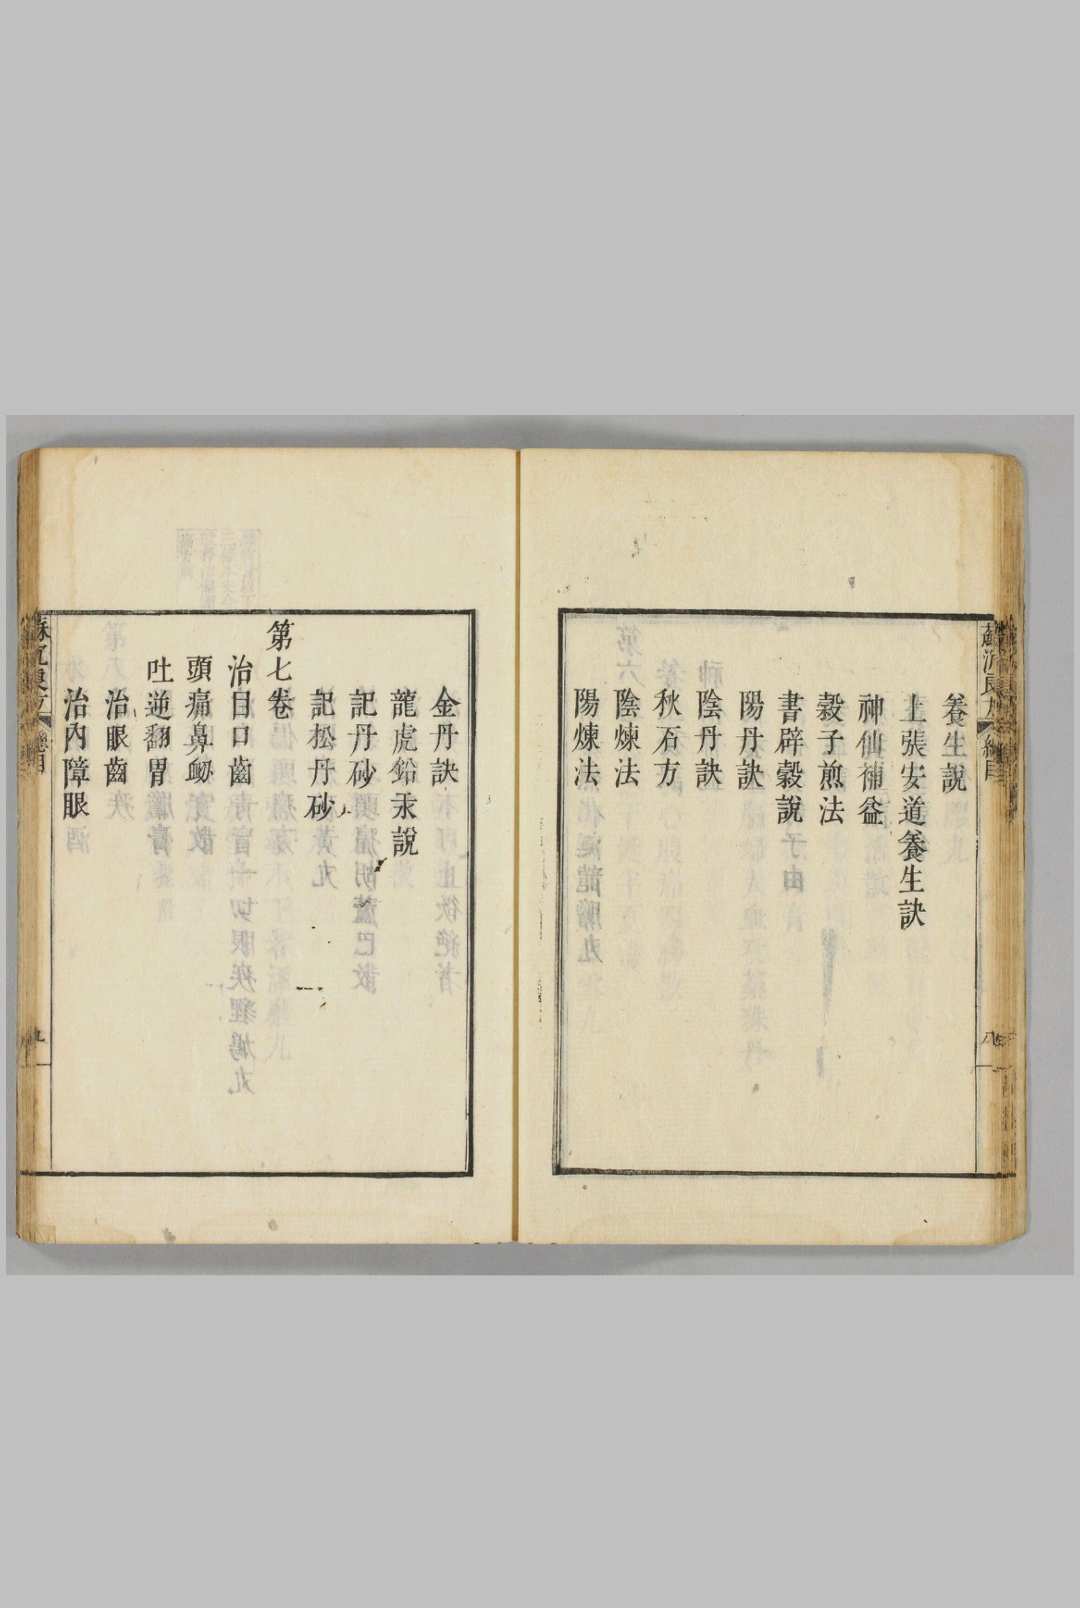 養生說
上張安道養生訣
神仙補益
穀子煎法
書辟穀說
陽丹訣
陰丹訣
秋石方
陰煉法
陽煉法
金丹訣
龍虎鉛汞說
記丹砂
記松丹砂
第七卷
治目口齒
頭痛鼻衂
吐逆翻胃
治眼齒
治內障眼